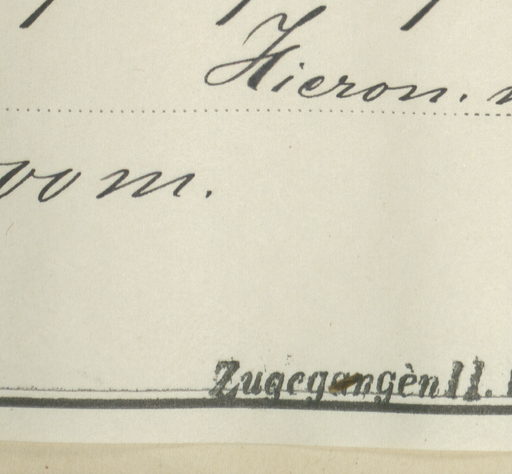 Hieron.
00 m.
Zugegangen 11.